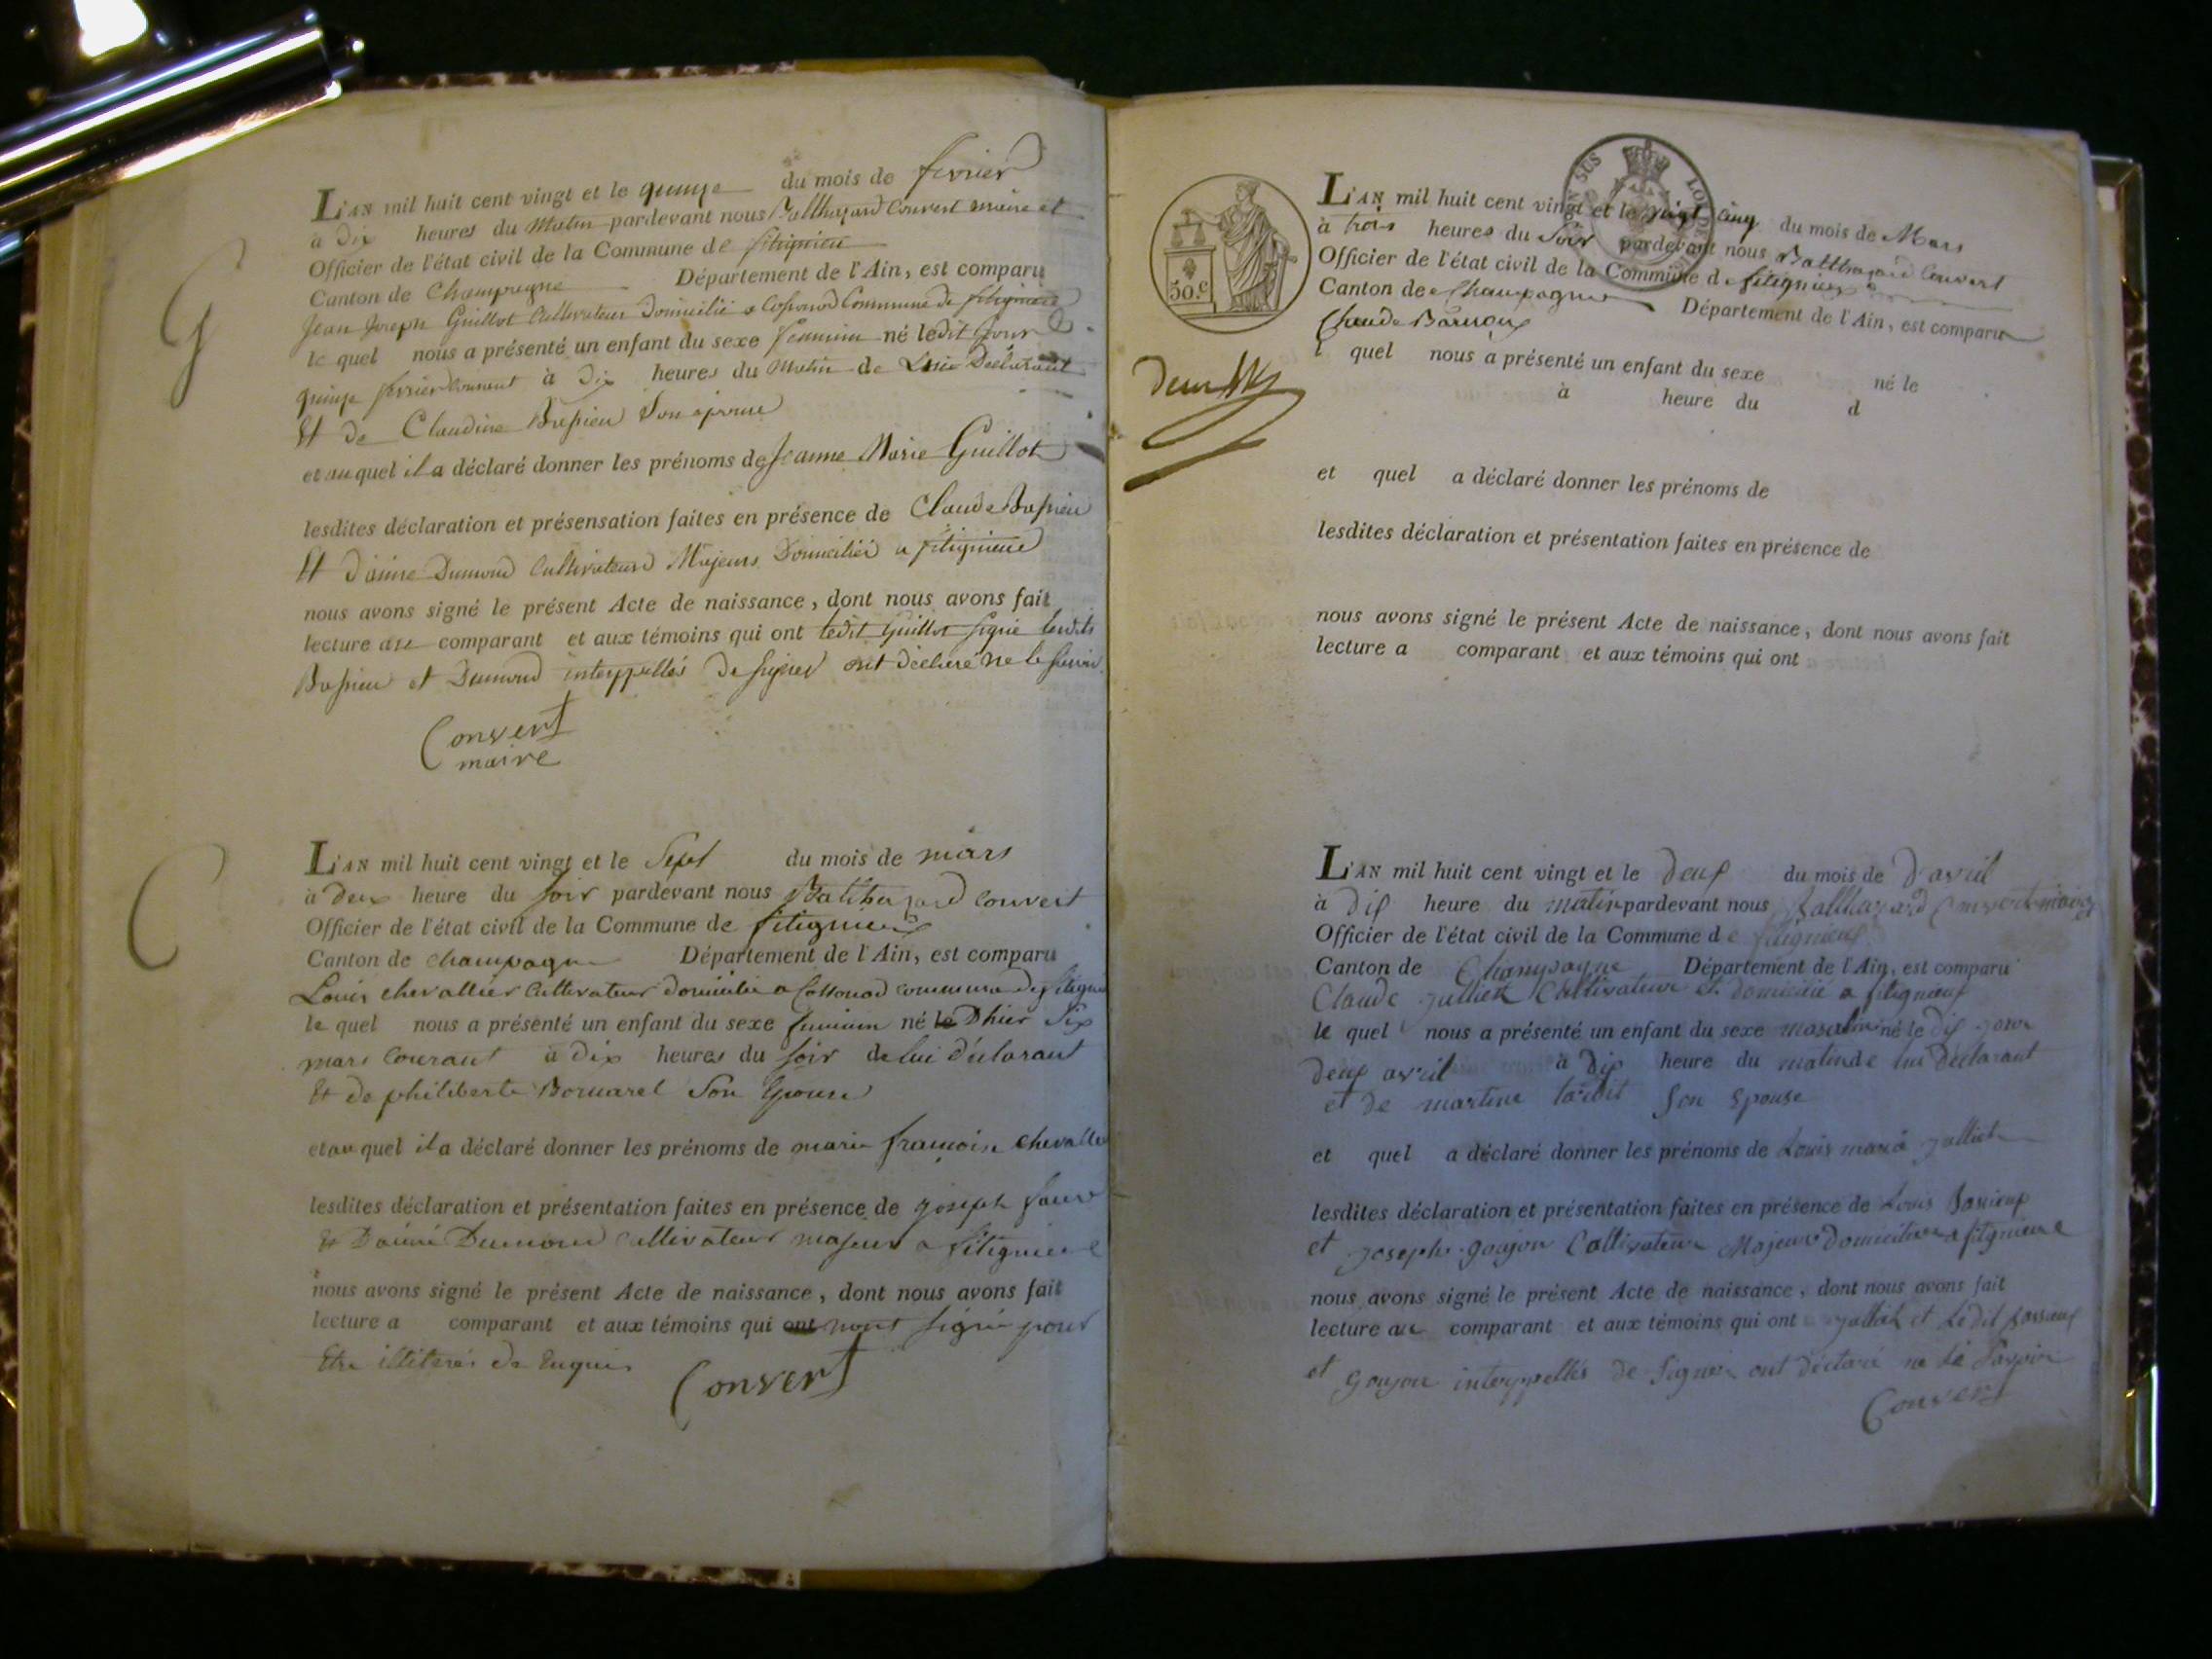 G
L'AN mil huit cent vingt et le quinze du mois de fevrier
à Dix heures du Matin pardevant nous Balthazard Convert maire et
Officier de l'état civil de la Commune de fitignieu
Canton de Champagne Département de l'Ain, est comparu
Jean Joseph Guillot Cultivateur Domicilié a Commune de fitignieu
le quel nous a présenté un enfant du sexe feminin né ledit jour
quinze fevrier Courant à Dix heures du Matin de Declarant
Et de Claudine Son epouse
et au quel il a déclaré donner les prénoms de Jeanne Marie Guillot
lesdites déclaration et présensation faites en présence de Claude
Et Dumond Cultivateurs Majeurs Domiciliés a fitignieu
nous avons signé le présent Acte de naissance, dont nous avons fait
lecture au comparant et aux témoins qui ont ledit Guillot signé lesdits
et Dumond interppellés De signer ont déclaré ne le savoir
Convert
maire
C
L'AN mil huit cent vingt et le Sept du mois de mars
à Deux heure du soir pardevant nous Balthazard Convert
Officier de l'état civil de la Commune de fitignieu
Canton de champagne Département de l'Ain, est comparu
Louis chevallier Cultivateur domicilié a commune de fitignieu
le quel nous a présenté un enfant du sexe feminin né le Dhier Six
mars Courant à Dix heures du soir de lui déclarant
Et de philiberte Son Epouse
et au quel il a déclaré donner les prénoms de marie françoise chevallier
lesdites déclaration et présentation faites en présence de joseph
Et Dumond Cultivateur majeur a fitignieu
nous avons signé le présent Acte de naissance, dont nous avons fait
lecture a comparant et aux témoins qui ont nont signé pour
Etre illiterés de Enquis
Convert
50.c
L'AN mil huit cent vingt et le vingt cinq du mois de Mars
à trois heures du Soir pardevant nous Balthazard Convert
Officier de l'état civil de la Commune de fitignieu
Canton de Champagne Département de l'Ain, est comparu
Claude
l quel nous a présenté un enfant du sexe né le
à heure du d
et quel a déclaré donner les prénoms de
lesdites déclaration et présentation faites en présence de
nous avons signé le présent Acte de naissance, dont nous avons fait
lecture a comparant et aux témoins qui ont
L'AN mil huit cent vingt et le deux du mois de D'avril
à Dix heure du matin pardevant nous Balthazard Convert maire et
Officier de l'état civil de la Commune de fitignieux
Canton de Champagne Département de l'Ain, est comparu
Claude Cultivateur et domicilié a fitignieux
le quel nous a présenté un enfant du sexe masculin né le dis jour
deux avril à Dix heure du matin de lui déclarant
et de martine son Epouse
et quel a déclaré donner les prénoms de Louis marie
lesdites déclaration et présentation faites en présence de Louis
et joseph goujon Cultivateur Majeur domicilier a fitignieu
nous avons signé le présent Acte de naissance, dont nous avons fait
lecture au comparant et aux témoins qui ont et Ledit
et goujon interppellés De Signer ont déclaré ne Le Savoir
Convert